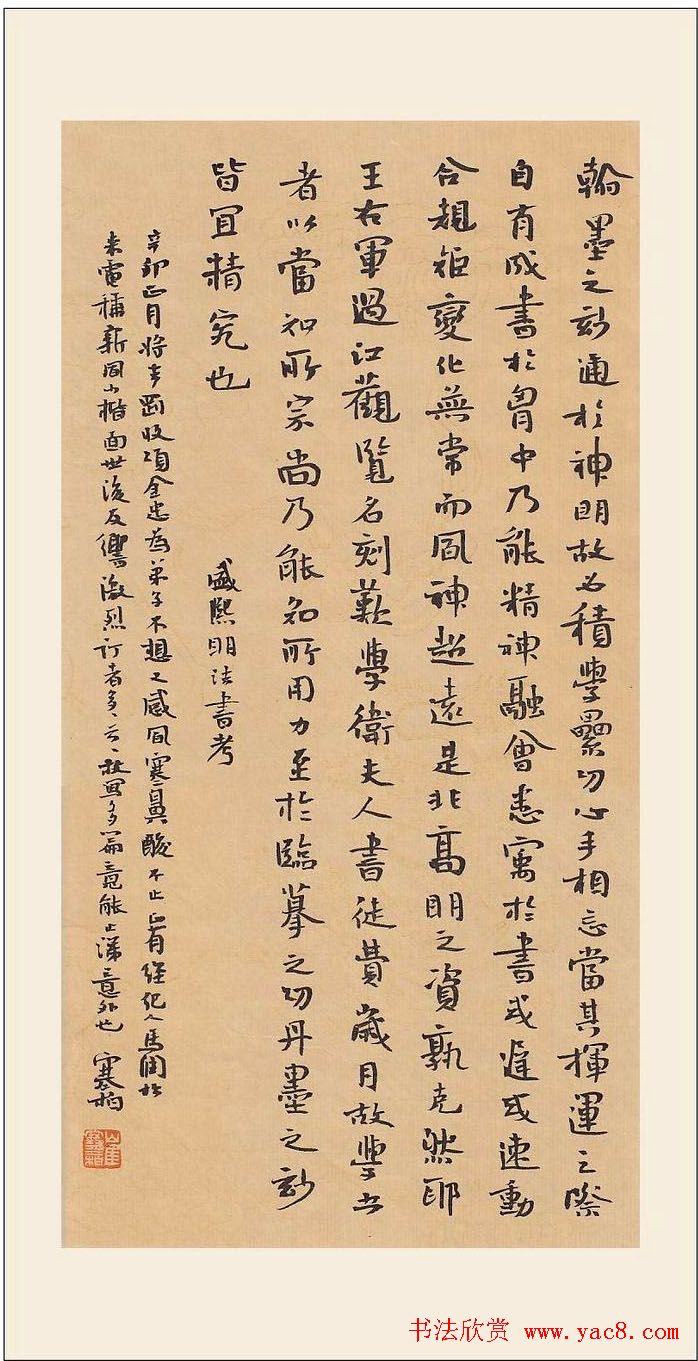 翰墨之玅通於神明故必積學累功心手相忘當其揮運之際
自有成書於胷中乃能精神融會悉寓於書或遲或速動
合規矩變化無常而風神超遠是非高明之資孰克然耶
王右軍過江觀覽名刻歎學衛夫人書徒費歲月故學書
者以當知所宗尚乃能知所用力至於臨摹之功丹墨之玅
皆宜精究也
盛熙明法書考
辛卯正月將去 收項金忠為弟子不想又感風寒鼻酸不止正有經紀人馬 於
來電稱新同小楷面世後反響激烈訂者多多云云 寫多篇竟能止涕意外也 寒柏
书法欣赏 www.yac8.com